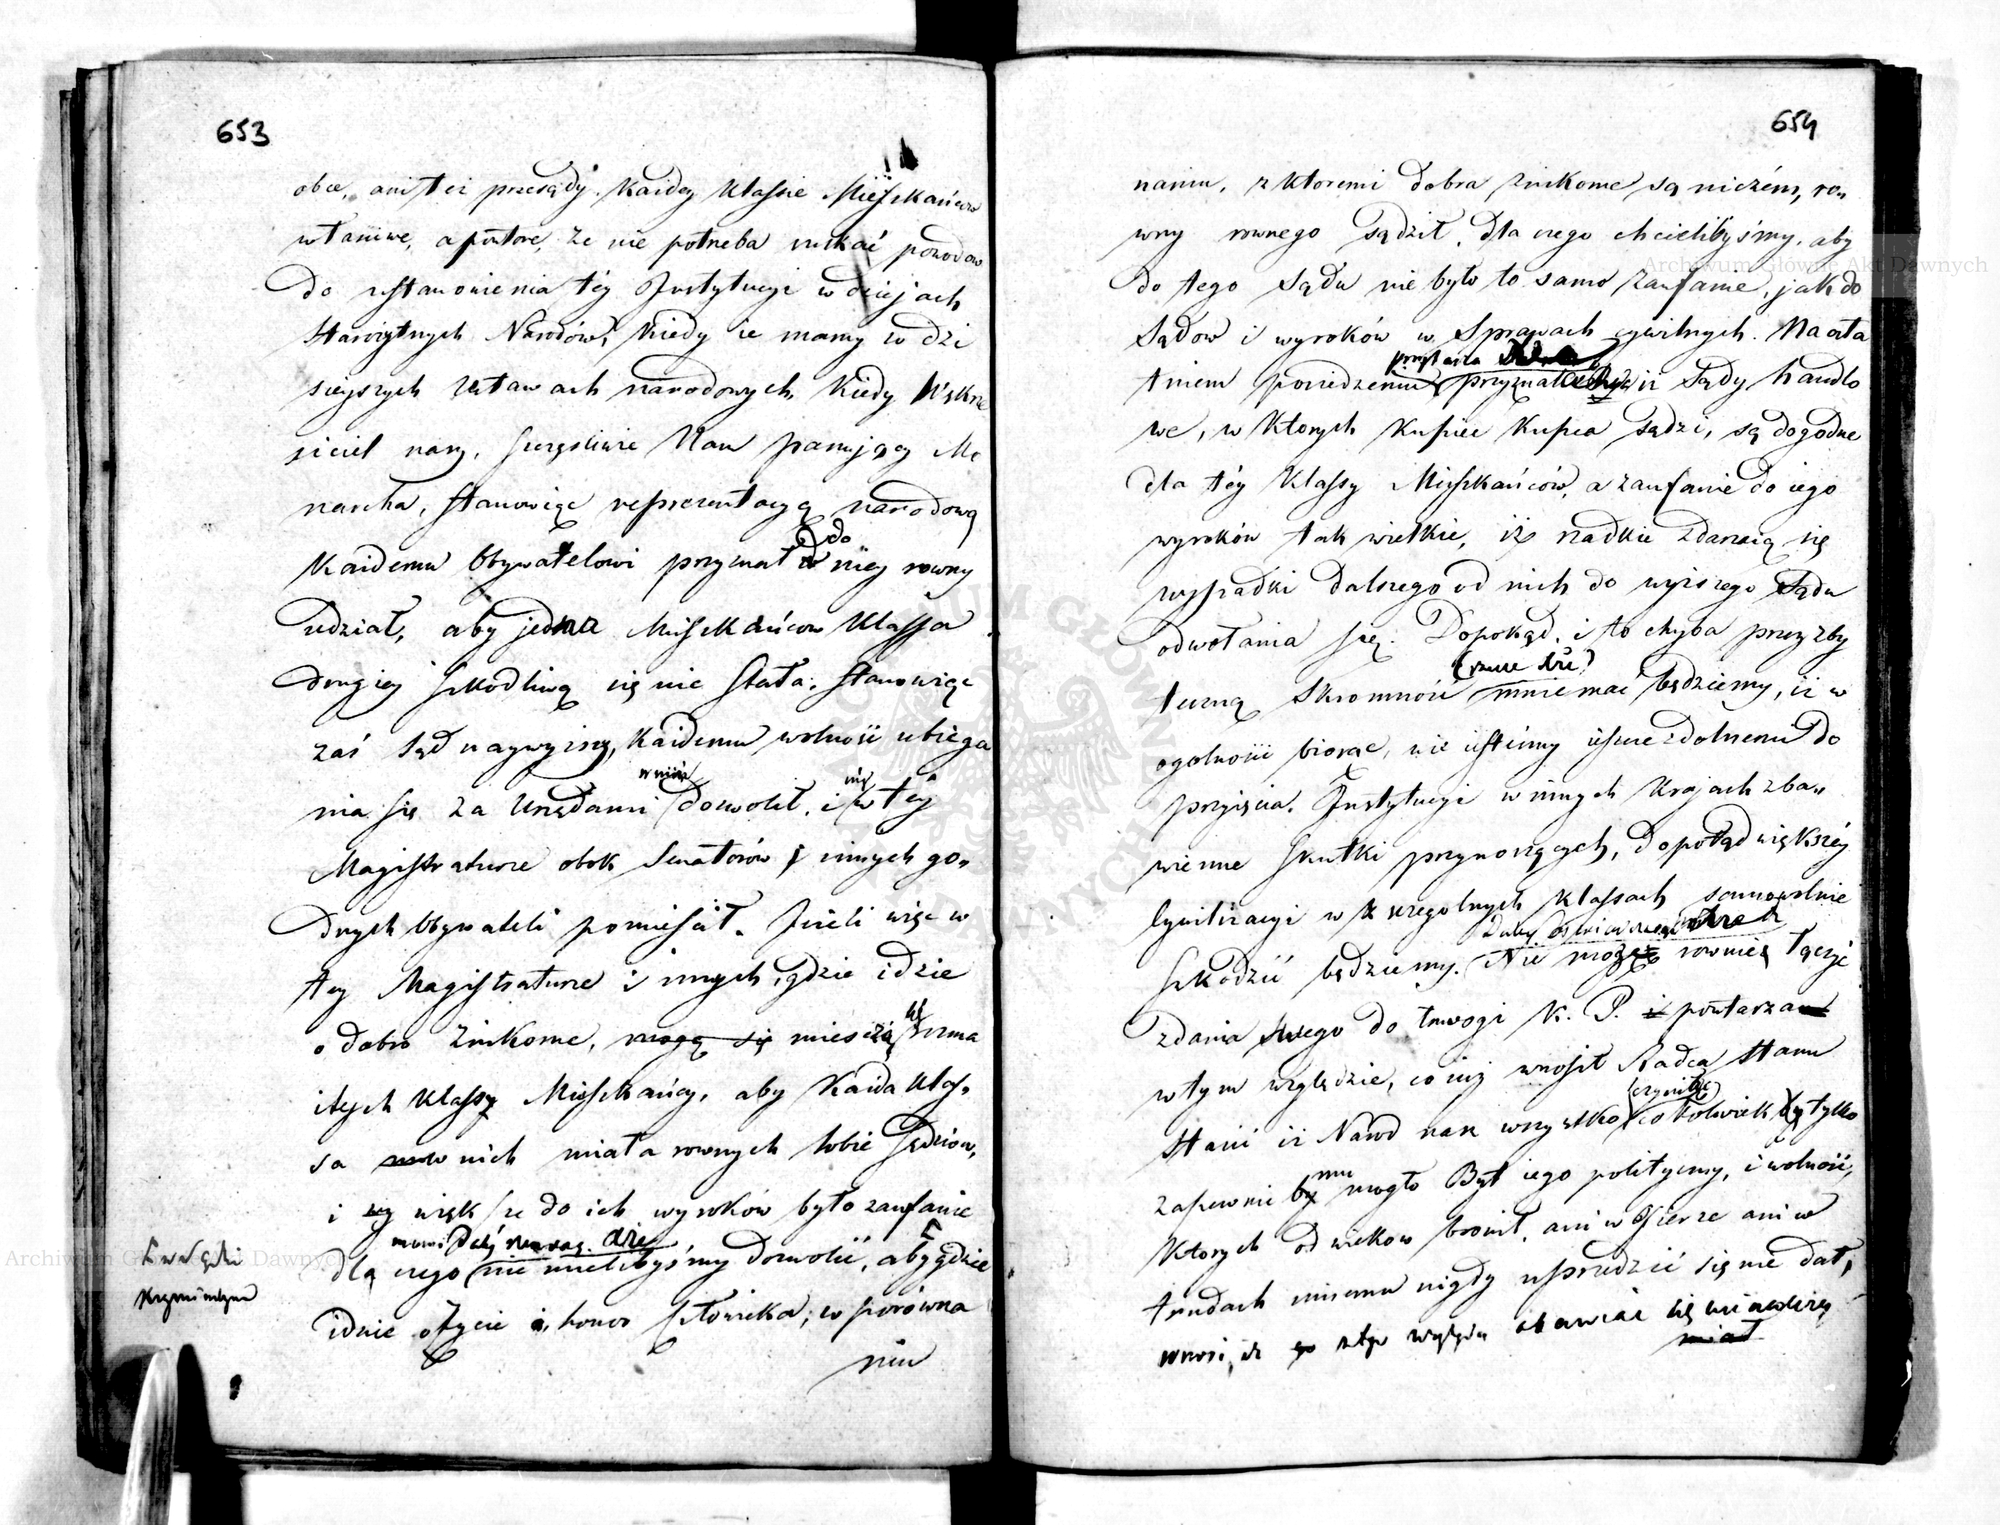 653
obce, ani też przesądy każdey klassie Mieszkańców
właściwe, a powtore, że nie potrzeba szukać powodow
do ustanowienia téy Instytucyi w dziejach
Starożytnych Narodów, kiedy ie mamy w dzi
sieyszych Ustawach narodowych, kiedy Wskrze
siciel nasz, szczęśliwie Nam panujący Mo
narcha, stanowiąc reprezentacyą narodową
do
każdemu Obywatelowi przyznał w niey rowny
udział, aby jedna Mieszkańcow Klassa
drugiey szkodliwą się nie stała; stanowiąc
zaś Sąd naywyższy, każdemu wolność ubiega
nia się za Urzędami dozwolił, i w téy
Magistraturze obok Senatorów i innych go„
dnych Obywateli pomieścił. Jeżeli więc w
tey Magistraturze i innych, gdzie idzie
o dobro znikome, mogą się mieszczą się rozma
itych klassy Mieszkańcy, aby każda klas„
sa w nich miała rownych sobie Sędziow,
i większe do ich wyroków było zaufanie
mowi Daléy
dla czego nie mielibyśmy dozwolić, aby gdzie
idzie o życie i honor człowieka, w porówna
niu
Kwalifik
Kryminalne
654
naniu, z ktoremi dobra znikome są niczém, ro„
wny rownego sądził, dla czego chcielibyśmy, aby
do tego Sądu nie było to samo zaufanie, jak do
Sądow i wyroków w Sprawach cywilnych. Na osta
tniem posiedzeniu przyznał iż Sądy handlo
we, w ktorych Kupiec Kupca sądzi, są dogodne
dla téy klassy Mieszkańców, a zaufanie do iego
wyroków tak wielkie, iż rzadkie zdarzaią się
wypadki dalszego od nich do wyższego Sądu
odwołania się. Dopokąd, i to chyba przez zby
teczną skromność mniemać będziemy, iż w
ogolności biorąc, nie iesteśmy ieszcze zdolnemi do
przyięcia Instytucyi w innych Krajach zba„
wienne skutki przynoszących, dopotąd większéy
Cywilizacyi w szczegolnych klassach samowolnie
szkodzić będziemy. Nie mogę rownież łączyć
zdania swego do trwogi K. P. i powtarza
w tym względzie, co iuż wnosił Radca Stanu
czynił
Staszic iż Narod nasz wszystko cokolwiek tylko
mu
zapewnić by mogło Byt iego polityczny, i wolność,
ktorych od wiekow bronił, ani w Ofierze ani w
trudach innemu nigdy uprzedzić się nie dał,
wnosi, iż z tego względu obawiać się nie należy
miał
Archiwum Główne Akt Dawnych